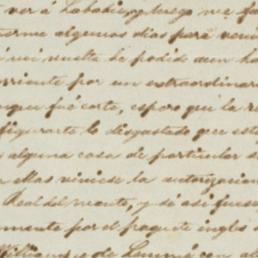 ver á Labadie, y luego me fu
algunos dias para veni
mi vuelta he podido aun ha
rriente por un extraordinar
que fué corta, espero que la re
figurarte lo disgustado que est
alguna cosa de particular
ellas viniese la autorizacion
Real del monte, y si asi fuese
mente por el paquete ingles